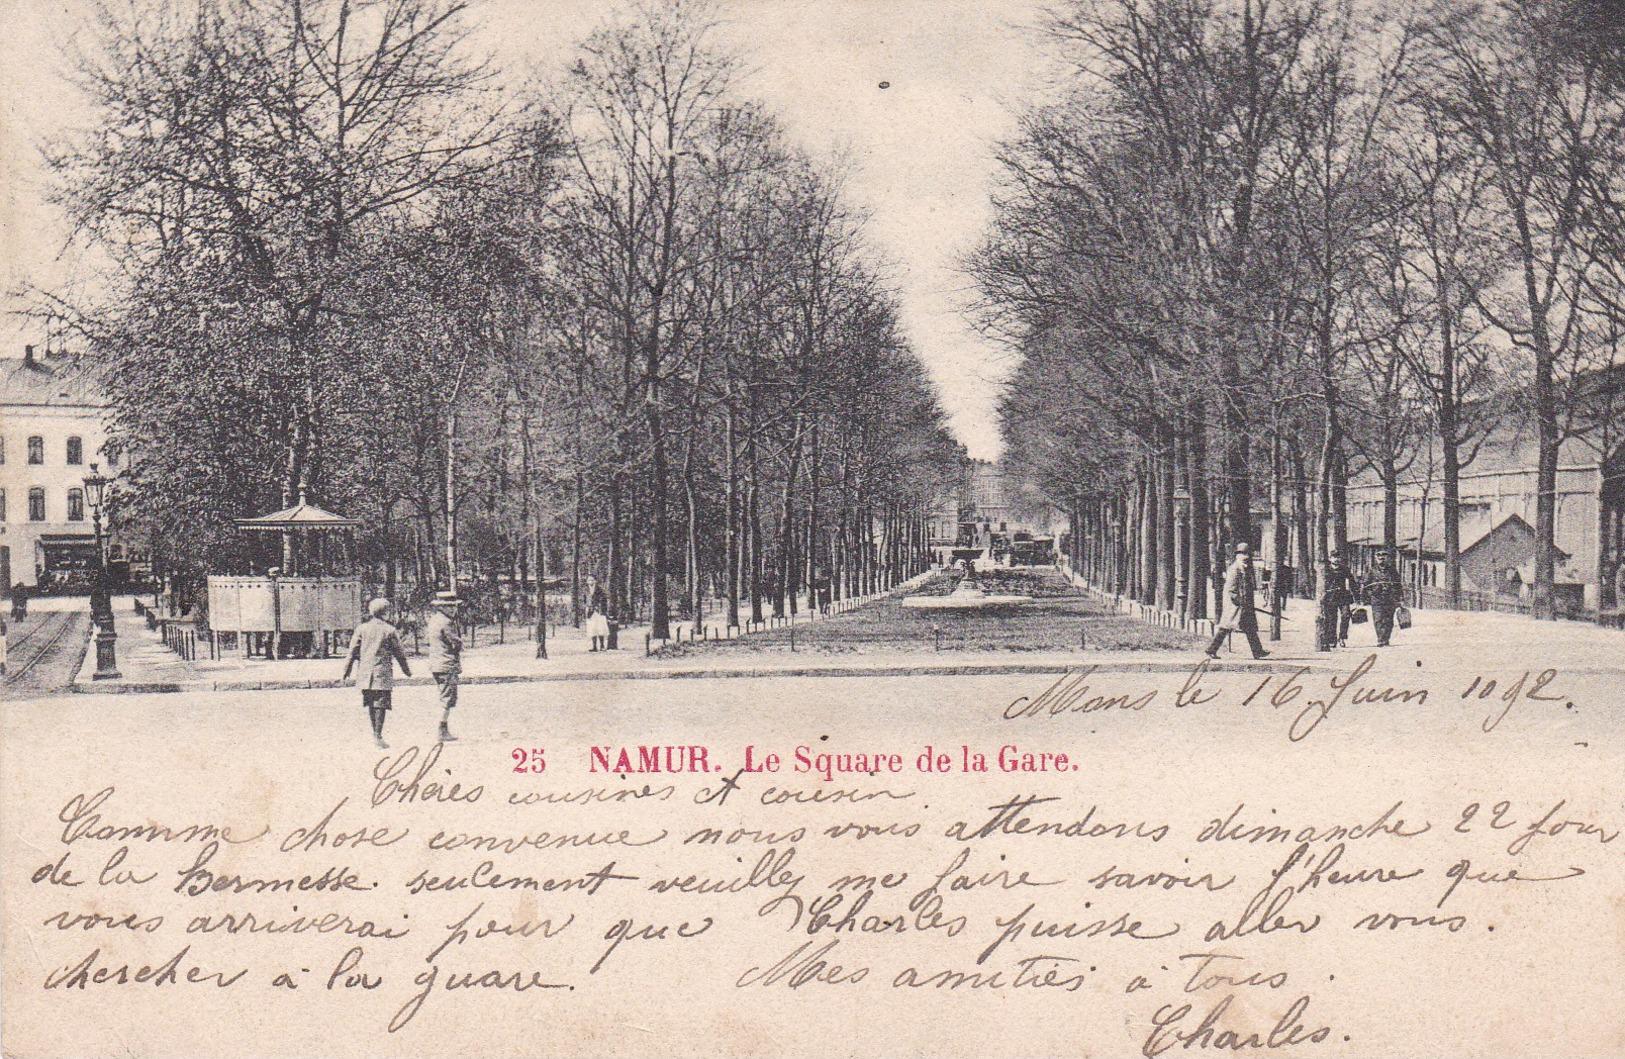 Mons le 16 Juin 1092.
25 NAMUR. Le Square de la Gare.
Chères cousines et cousin
Comme chose convenue nous vous attendons dimanche 22 jour
de la kermesse. seulement veuillez me faire savoir l'heure que
vous arriverai pour que Charles puisse aller vous.
chercher à la guare. Mes amitiés à tous.
Charles.